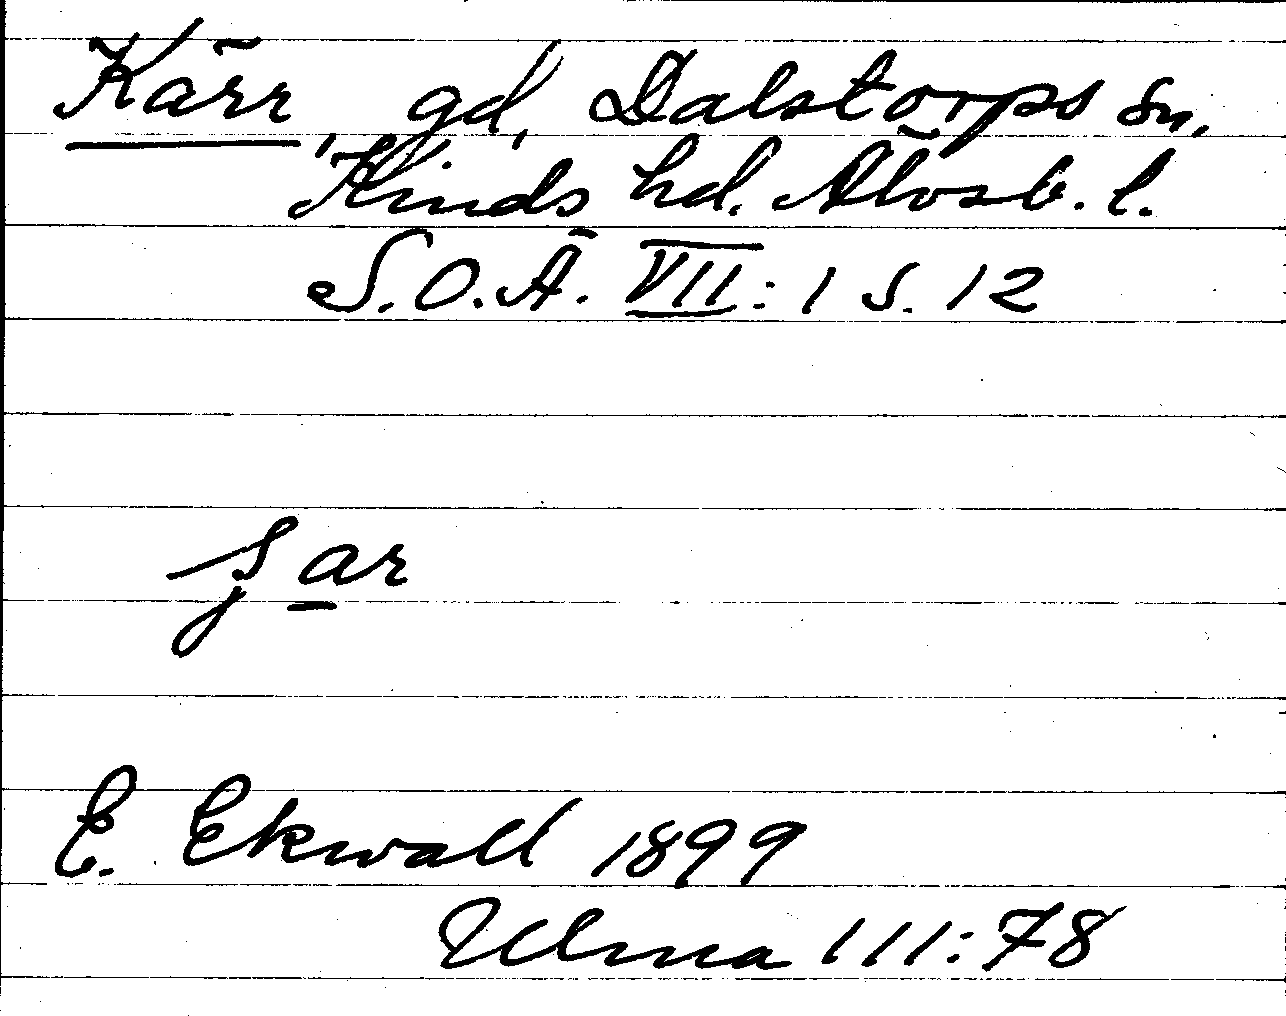 Kärr, gd, Dalstorps sn,
Kinds hd. Älvsb. l.
S.O.Ä. VII: 1 S. 12
E. Ekwall 1899
Ulma 111:78